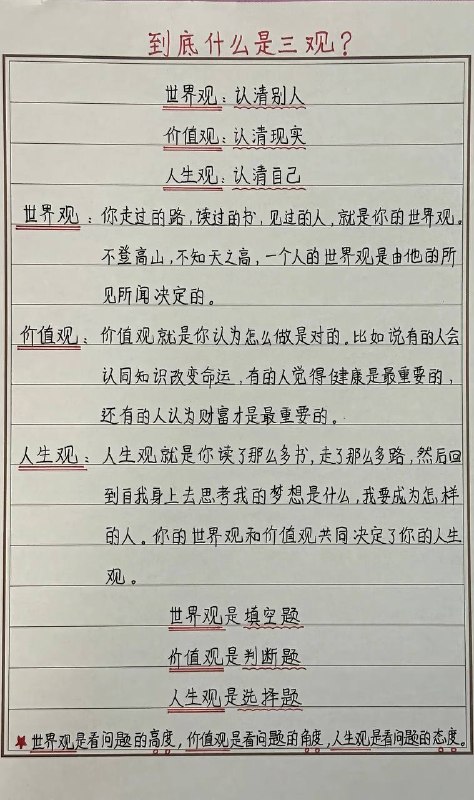 到底什么是三观？
世界观：认清别人
价值观：认清现实
人生观：认清自己
世界观：你走过的路，读过的书，见过的人，就是你的世界观。
不登高山，不知天之高，一个人的世界观是由他的所
见所闻决定的。
价值观：价值观就是你认为怎么做是对的。比如说有的人会
认同知识改变命运，有的人觉得健康是最重要的，
还有的人认为财富才是最重要的。
人生观：人生观就是你读了那么多书，走了那么多路，然后回
到自我身上去思考我的梦想是什么，我要成为怎样
的人。你的世界观和价值观共同决定了你的人生
观。
世界观是填空题
价值观是判断题
人生观是选择题
★世界观是看问题的高度，价值观是看问题的角度，人生观是看问题的态度。